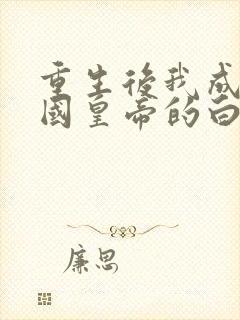 重生後我成
國皇帝的白
廉思